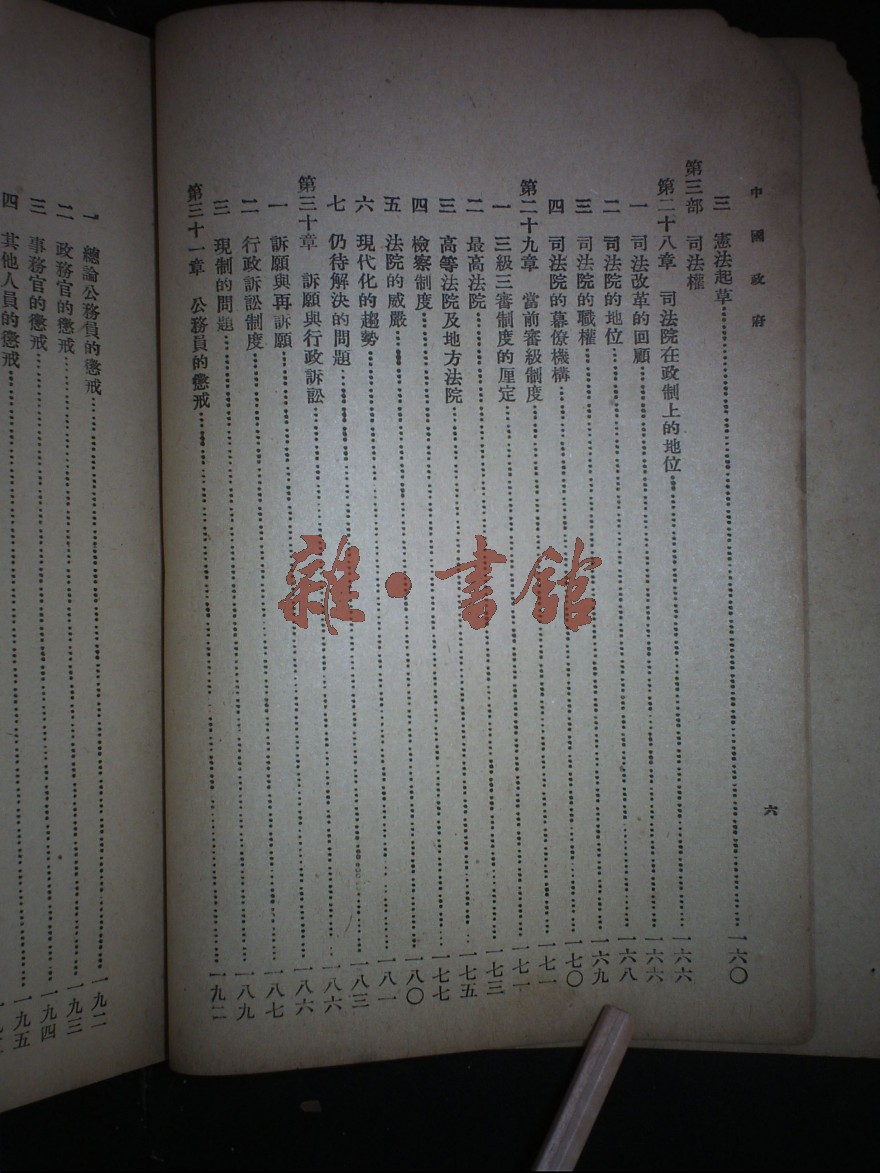 中國政府
六
三 憲法起草 一六〇
第三部 司法權
第二十八章 司法院在政制上的地位 一六六
一 司法改革的回顧 一六六
二 司法院的地位 一六八
三 司法院的職權 一六九
四 司法院的幕僚機構 一七〇
第二十九章 當前審級制度 一七一
一 三級三審制度的厘定 一七一
二 最高法院 一七三
三 高等法院及地方法院 一七五
四 檢察制度 一七七
五 法院的威嚴 一八〇
六 現代化的趨勢 一八一
七 仍待解決的問題 一八三
第三十章 訴願與行政訴訟 一八六
一 訴願與再訴願 一八六
二 行政訴訟制度 一八七
三 現制的問題 一八九
第三十一章 公務員的懲戒 一九二
一 總論公務員的懲戒 一九二
二 政務官的懲戒 一九三
三 事務官的懲戒 一九四
四 其他人員的懲戒 一九五
雜·書館